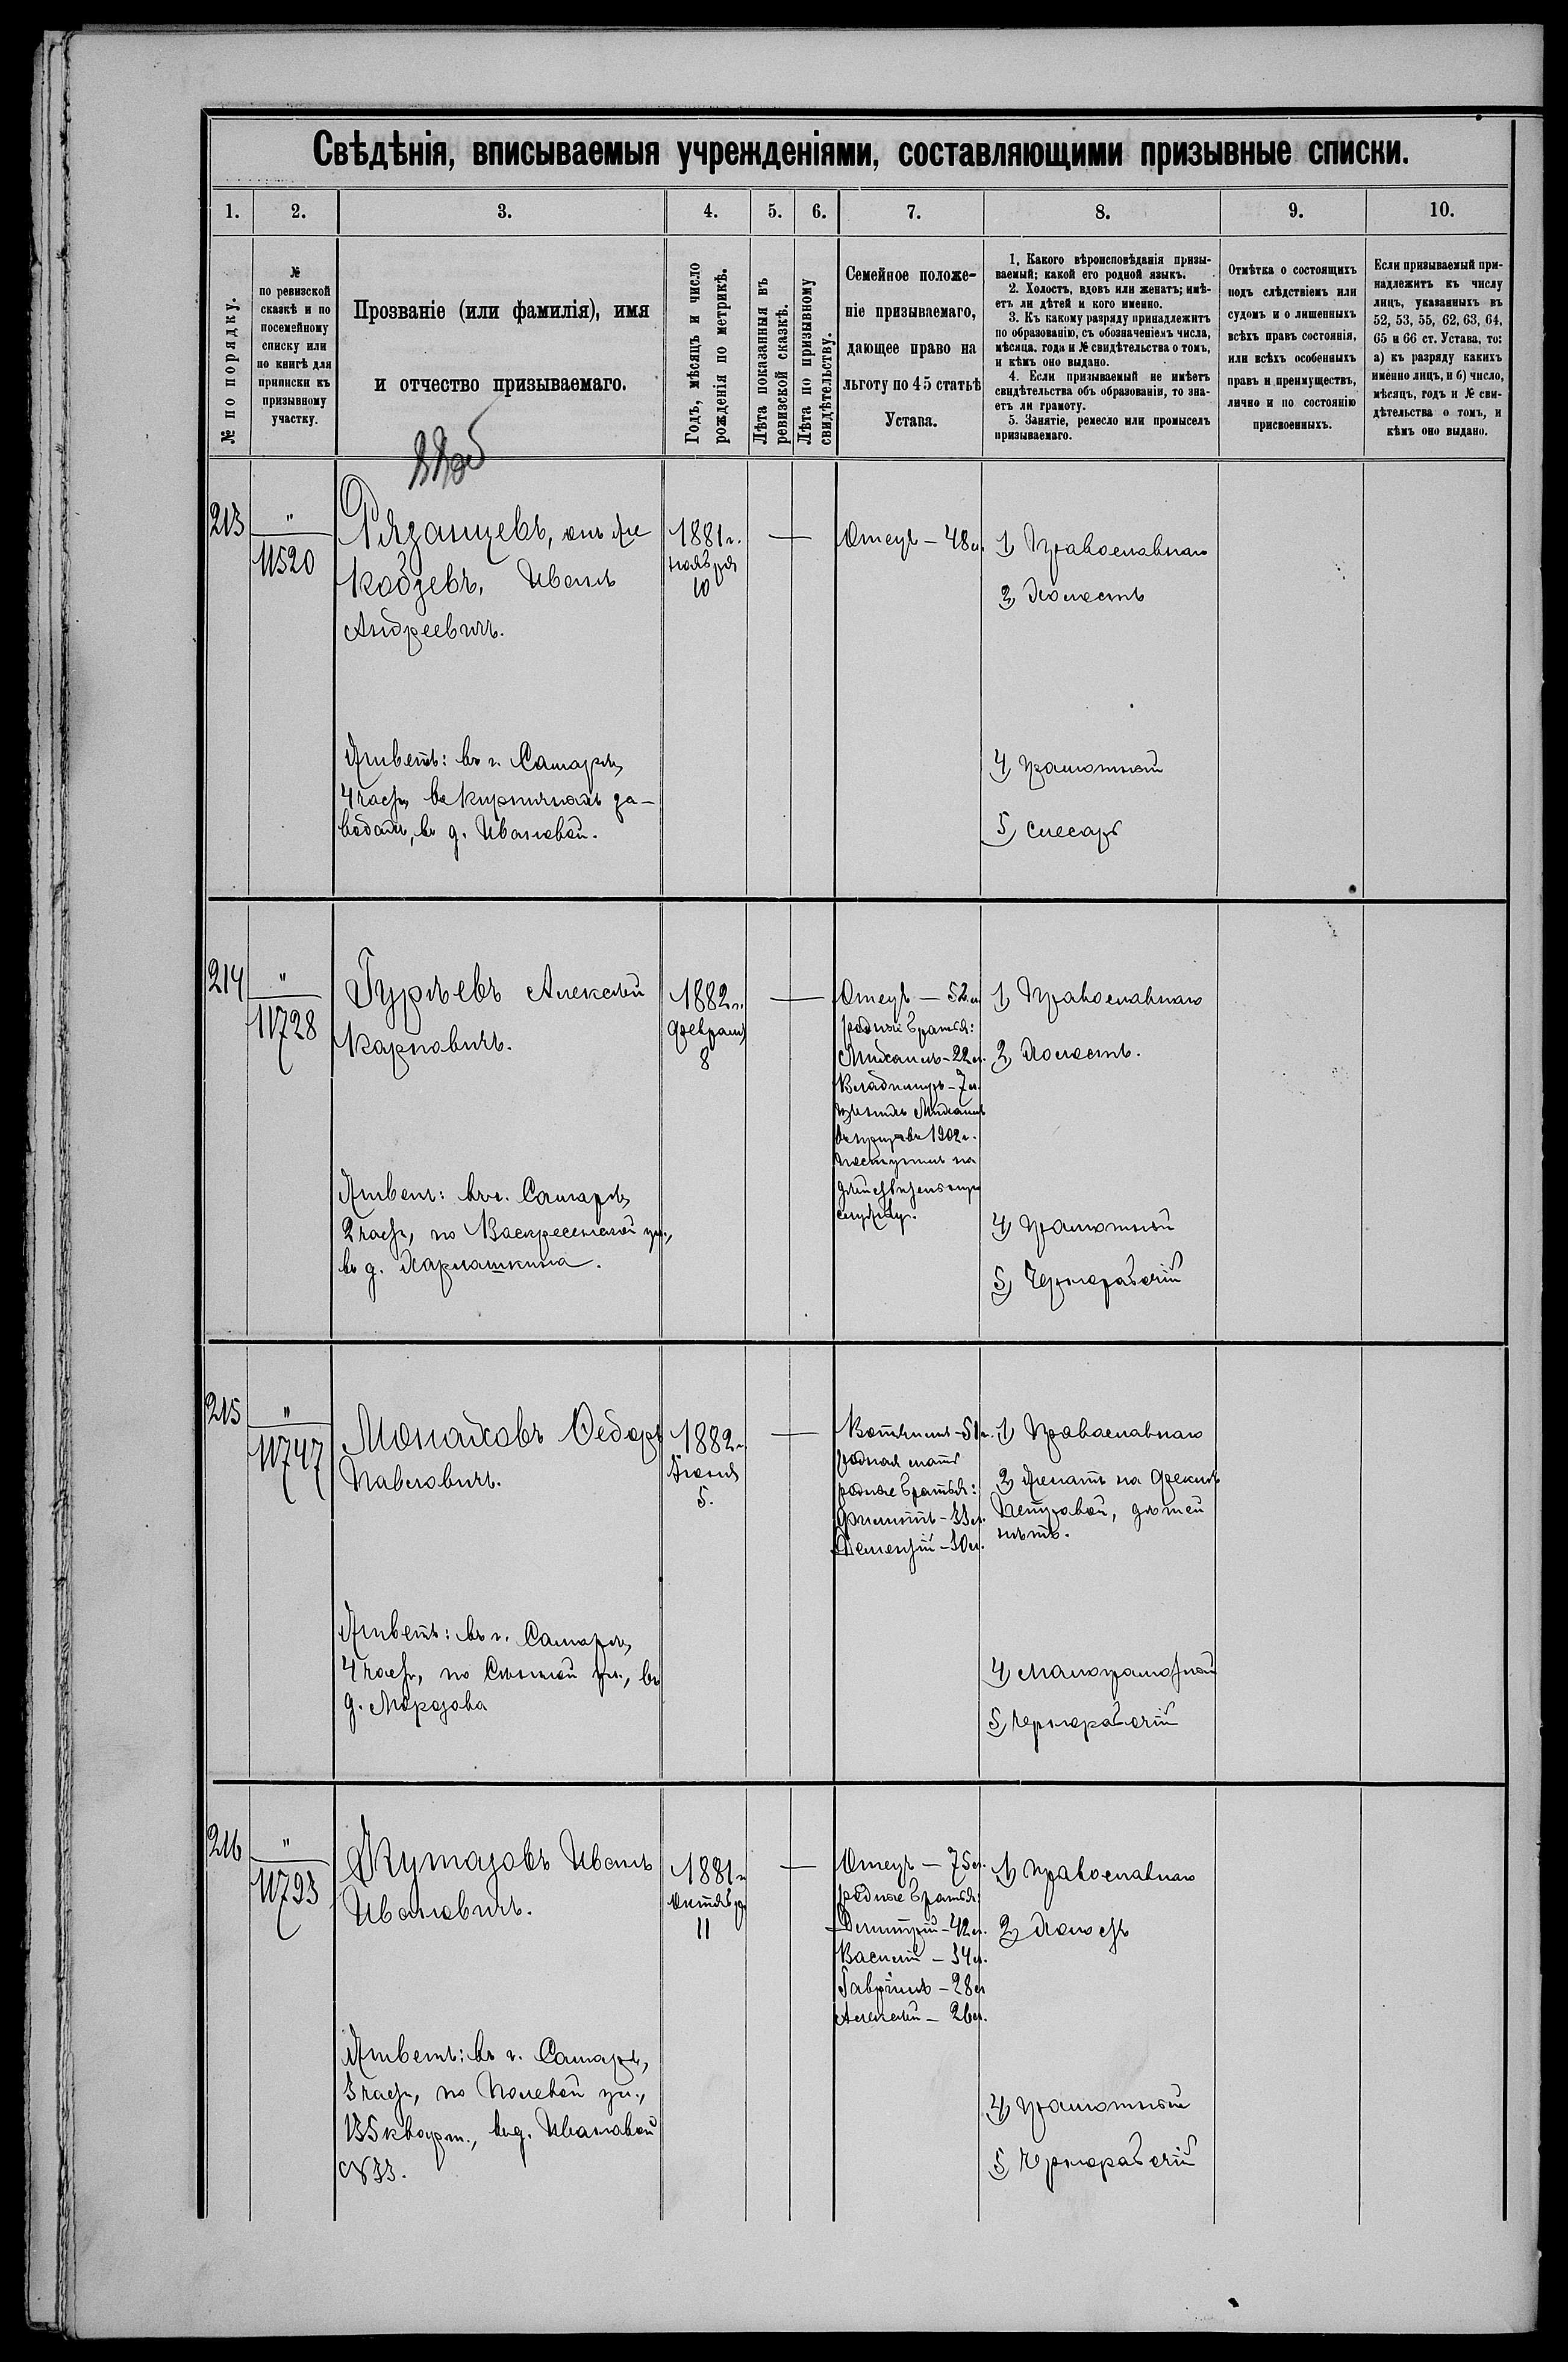 Свѣдѣнія, вписываемыя учрежденіями, составляющими призывные списки.
1. 2. 3. 4. 5. 6. 7. 8. 9. 10.
№ по порядку.
№
по ревизской
сказкѣ и по
посемейному
списку или
по книгѣ для
приписки къ
призывному
участку.
Прозваніе (или фамилія), имя
и отчество призываемаго.
Годъ, мѣсяцъ и число
рожденія по метрикѣ.
Лѣта показанныя въ
ревизской сказкѣ.
Лѣта по призывному
свидѣтельству.
Семейное положе-
ніе призываемаго,
дающее право на
льготу по 45 статьѣ
Устава.
1. Какого вѣроисповѣданія призы-
ваемый; какой его родной языкъ.
2. Холостъ, вдовъ или женатъ; имѣ-
етъ ли дѣтей и кого именно.
3. Къ какому разряду принадлежитъ
по образованію, съ обозначеніемъ числа,
мѣсяца, года и № свидѣтельства о томъ,
и кѣмъ оно выдано.
4. Если призываемый не имѣетъ
свидѣтельства объ образованіи, то зна-
етъ ли грамоту.
5. Занятіе, ремесло или промыселъ
призываемаго.
Отмѣтка о состоящихъ
подъ слѣдствіемъ или
судомъ и о лишенныхъ
всѣхъ правъ состоянія,
или всѣхъ особенныхъ
правъ и преимуществъ,
лично и по состоянію
присвоенныхъ.
Если призываемый при-
надлежитъ къ числу
лицъ, указанныхъ въ
52, 53, 55, 62, 63, 64,
65 и 66 ст. Устава, то:
а) къ разряду какихъ
именно лицъ, и б) число,
мѣсяцъ, годъ и № сви-
дѣтельства о томъ, и
кѣмъ оно выдано.
213
"
11520
Рязанцевъ, онъ же
Кобзевъ, Иванъ
Андреевичъ.
Живетъ: въ г. Самарѣ,
4 части, въ кирпичныхъ за-
водахъ, въ д. Ивановой.
1881 г.
ноября
10
Отецъ – 48 л.
1) Православнаго
2) Холостъ
4) грамотный
5) слесарь
214
"
11728
Гурьевъ Алексѣй
Карповичъ.
Живетъ: въ г. Самарѣ,
2 части, по Воскресенской ул.,
въ д. Харлашкина.
1882 г.
февраля
8
Отецъ – 52 л.
родные братья:
Михаилъ – 22 л.
Владимиръ – 7 л.
изъ нихъ Михаилъ
въ призывъ 1902 г.
поступилъ на
дѣйствительную
службу.
1) Православнаго
2) Холостъ.
4) грамотный
5) Чернорабочій
215
"
11747
Монаховъ Ѳедоръ
Павловичъ.
Живетъ: въ г. Самарѣ,
4 части, по Сѣнной ул., въ
д. Морозова
1882 г.
Іюня
5.
Вотчимъ – 51 л.
родная мать
родные братья:
Филиппъ – 33 л.
Дементій – 30 л.
1) Православнаго
2) Женатъ на Феклѣ
Петровой, дѣтей
нѣтъ.
4) малограмотный
5) чернорабочій
216
"
11793
Жутаковъ Иванъ
Ивановичъ.
Живетъ: въ г. Самарѣ,
3 части, по Полевой ул.,
135 кварт., въ д. Ивановой
№ 33.
1881 г.
Октября
11
Отецъ – 75 л.
родные братья:
Димитрій – 42 л.
Василій – 34 л.
Гавріилъ – 28 л.
Алексѣй – 26 л.
1) Православнаго
2) Холостъ
4) грамотный
5) Чернорабочій